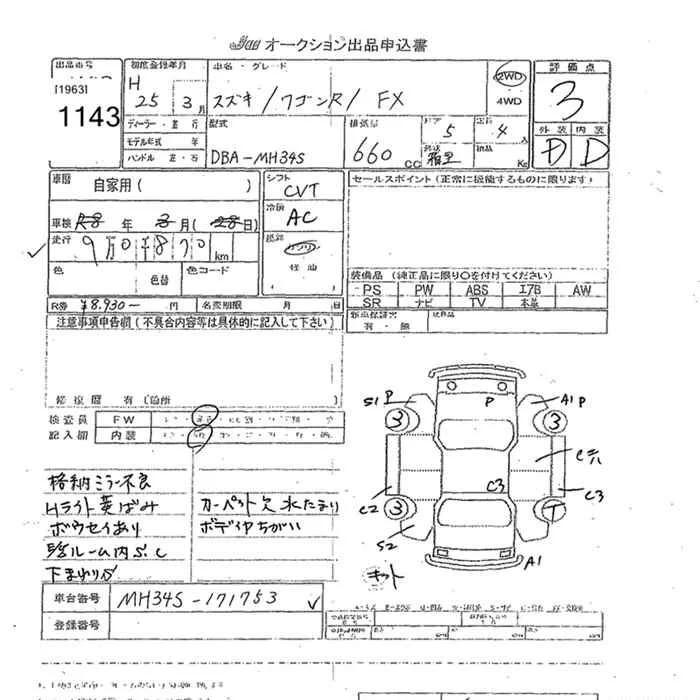 オークション出品申込書
出品番号
初度登録年月
車名・グレード
評価点
[1963]
1143
H
25 3月
スズキ/ワゴンR/FX
2WD
4WD
3
ディーラー・並行
型式
排気量
ドア
定員
外装 内装
モデル年式 年
DBA-MH34S
660 cc
5
4
D D
ハンドル 左・右
Kg
車歴
自家用( )
シフト
CVT
セールスポイント(正常に機能するものに限ります)
冷房
AC
車検 R8 年 3月( 28日)
走行
9万0千870km
ガソリン
軽油
色
色替
色コード
装備品(純正品に限り○を付けてください)
PS PW ABS エアB AW
SR ナビ TV 本革
R券 ¥8,930- 円
名変期限 月 日
新車保証書
有・無
注意事項申告欄(不具合内容等は具体的に記入して下さい)
修復歴 有(箇所
検査員
記入欄
FW
内装
格納ミラー不良
Hライト黄ばみ
ボウセイあり
ルーム内S.C
カーペット欠 水たまり
ボディ色ちがい
S1 P
P
A1 P
3
3
C3
C3
C2
3
T
S2
A1
キット
車台番号
MH34S-171753
登録番号